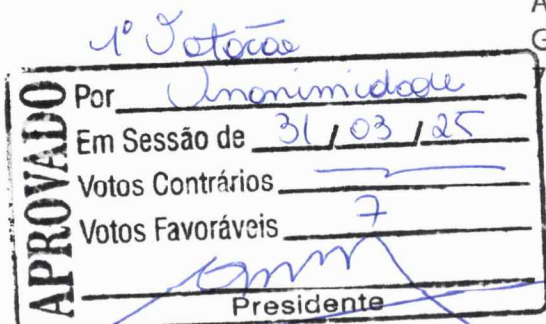 1º Votacao
APROVADO
Por Unanimidade
Em Sessão de 31 / 03 / 25
Votos Contrários
Votos Favoráveis 7
Presidente